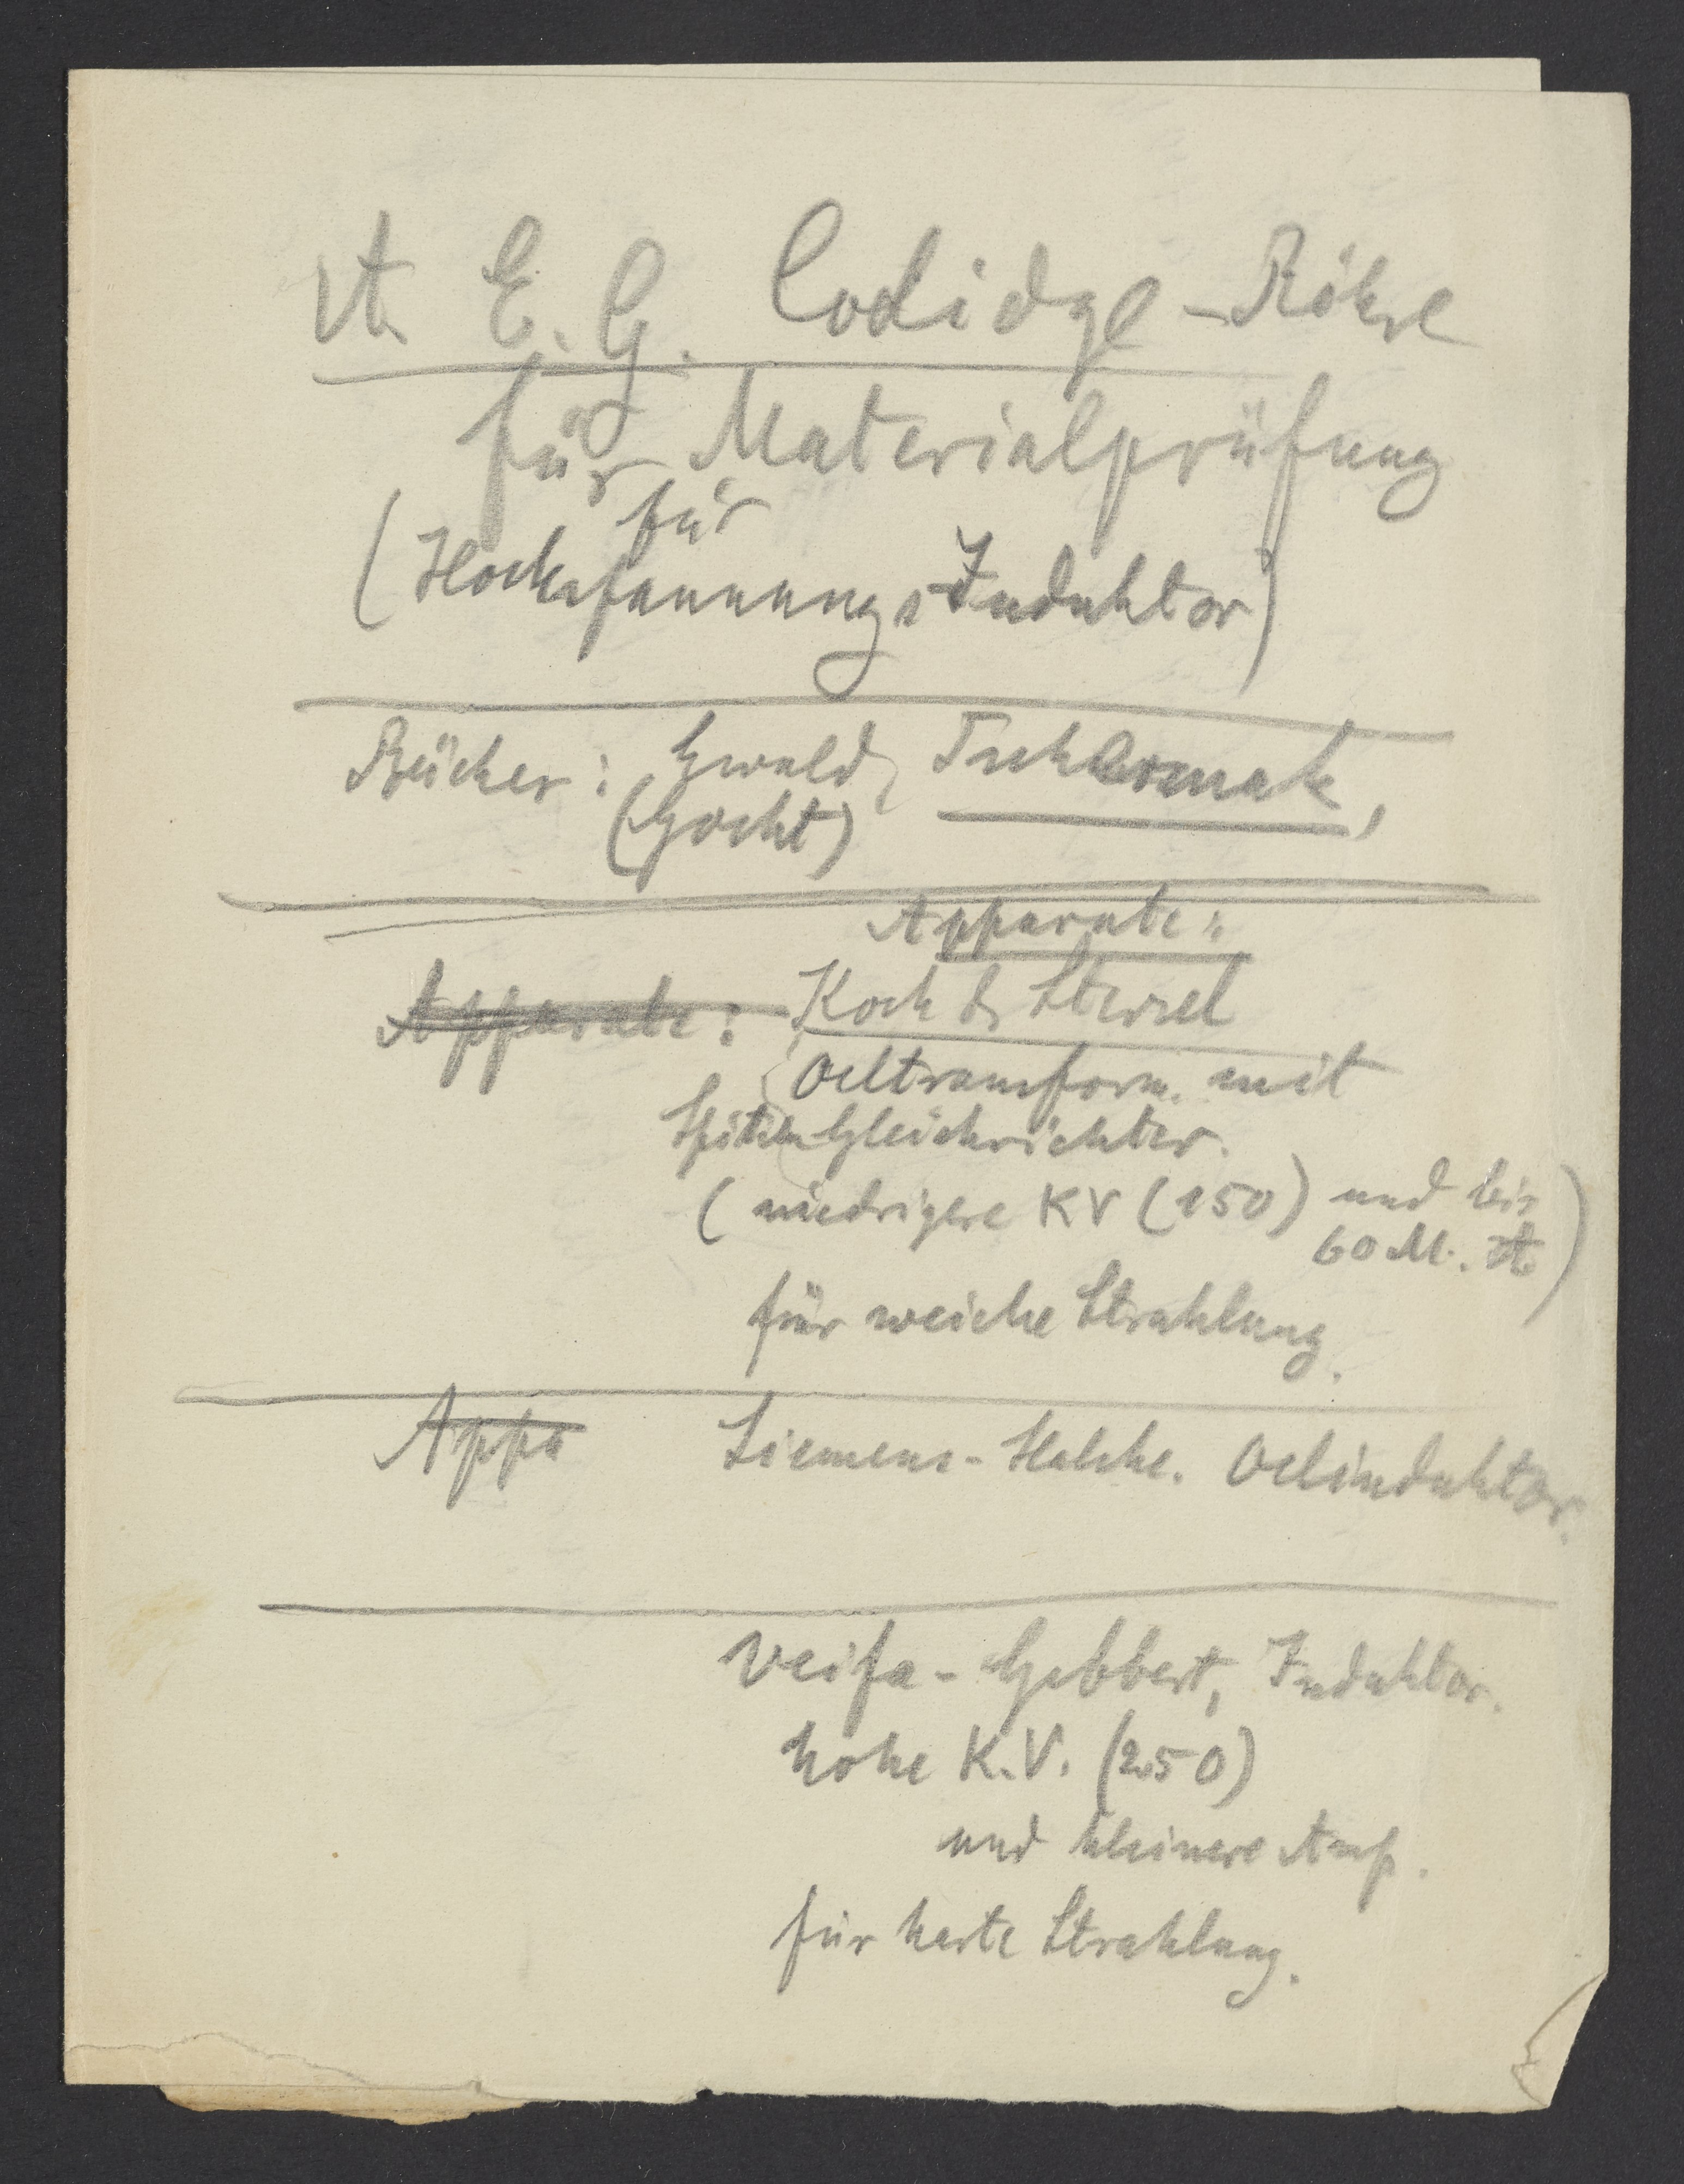 A. E. G. Colidge-Röhre
für Materialprüfung
für
(HochspannungsInduktor)
Bücher: Ewald, Tschermak,
(Gocht)
Apparate:
Apparate: Koch & Sterzel
Oeltransform. mit
Gleichrichter.
(niedrigere KV (150) und bis
60 M. A)
für weiche Strahlung.
Appa Siemens-Halske. Oelinduktor.
Veifa-Gebbert, Induktor.
hohe K.V. (250)
und kleinere Amp.
für harte Strahlung.